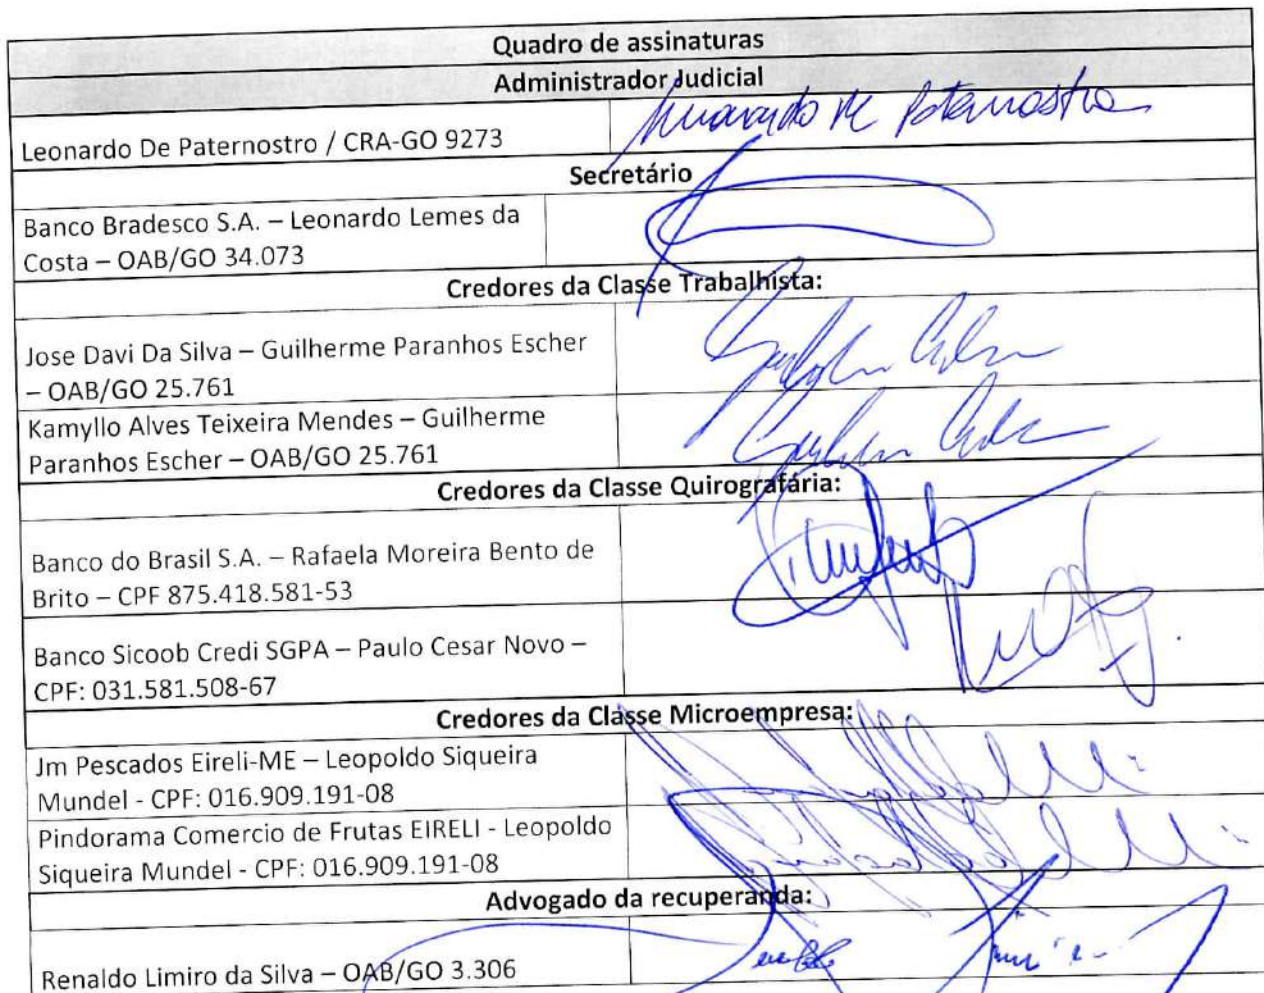 Quadro de assinaturas
Administrador Judicial
Leonardo De Paternostro / CRA-GO 9273
Secretário
Banco Bradesco S.A. – Leonardo Lemes da
Costa – OAB/GO 34.073
Credores da Classe Trabalhista:
Jose Davi Da Silva – Guilherme Paranhos Escher
– OAB/GO 25.761
Kamyllo Alves Teixeira Mendes – Guilherme
Paranhos Escher – OAB/GO 25.761
Credores da Classe Quirografária:
Banco do Brasil S.A. – Rafaela Moreira Bento de
Brito – CPF 875.418.581-53
Banco Sicoob Credi SGPA – Paulo Cesar Novo –
CPF: 031.581.508-67
Credores da Classe Microempresa:
Jm Pescados Eireli-ME – Leopoldo Siqueira
Mundel - CPF: 016.909.191-08
Pindorama Comercio de Frutas EIRELI - Leopoldo
Siqueira Mundel - CPF: 016.909.191-08
Advogado da recuperanda:
Renaldo Limiro da Silva – OAB/GO 3.306